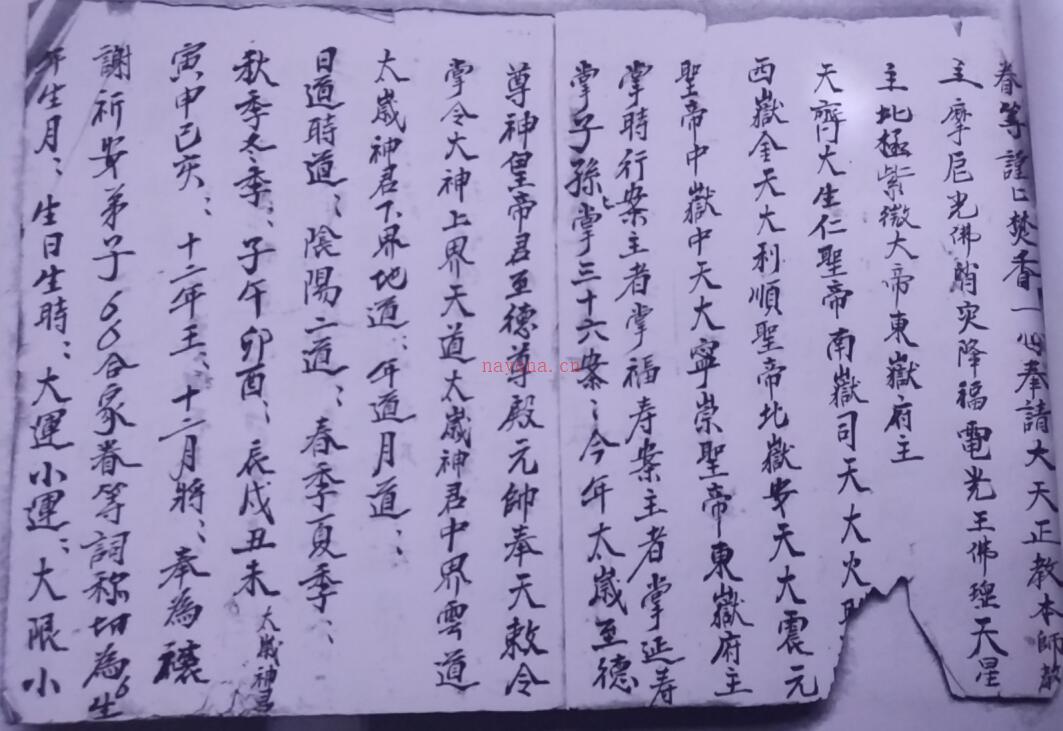 眷等謹㠯焚香一心奉請大天正教本師
主摩尼光佛消灾降福電光王佛瑠天星
主北極紫微大帝東嶽府主
天齊大生仁聖帝南嶽司天大火
西嶽金天大利順聖帝北嶽安天大震元
聖帝中嶽中天大寧崇聖帝東嶽府主
掌時行案主者掌福寿案主者掌延寿
掌子孫掌三十六案〻今年太歲至德
尊神皇帝君至德尊殿元帥奉天敕令
掌令大神上界天道太歲神君中界雲道
太歲神君下界地道〻年道月道〻
日道時道〻陰陽二道〻春季夏季〻
秋季冬季〻子午卯酉〻辰戌丑未太歲神君
寅申巳亥〻十二年王〻十二月將〻奉為禳
謝祈安弟子厶厶合家眷等詞称切為厶生
年生月〻生日生時〻大運小運〻大限小
nayona.cn